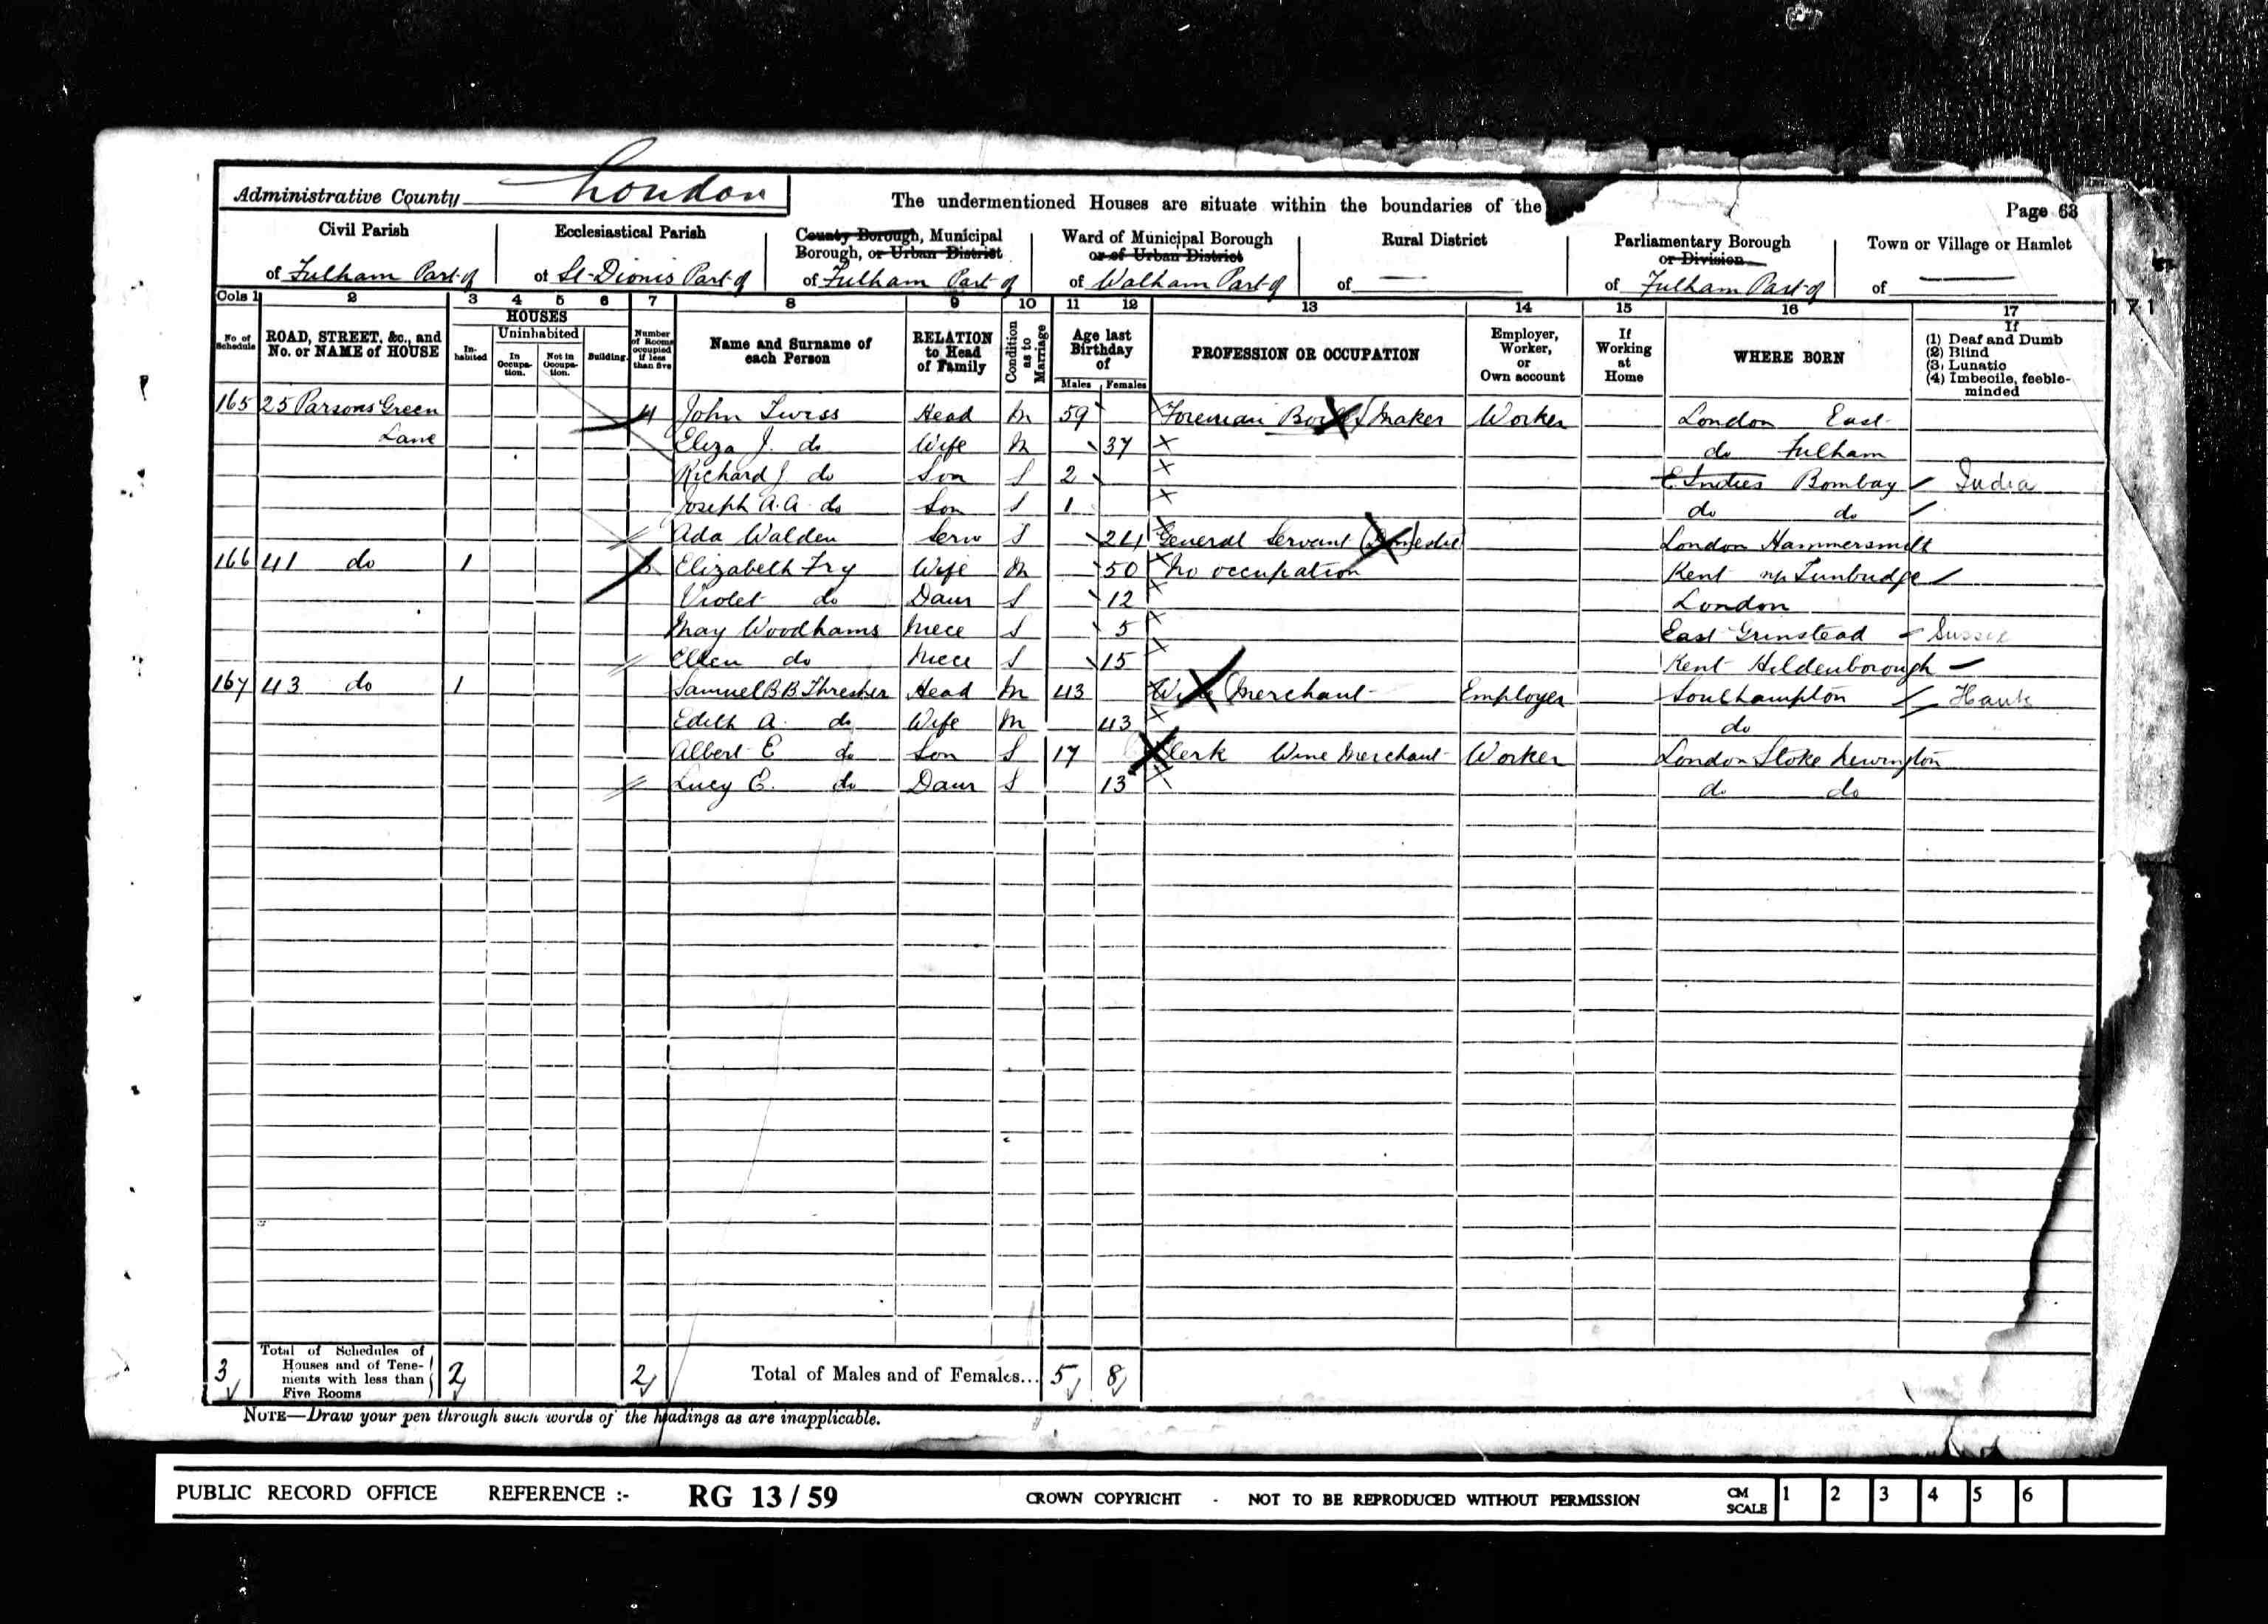 Administrative County London
The undermentioned Houses are situate within the boundaries of the
Page 63
Civil Parish
of Fulham Part of
Ecclesiastical Parish
of St Dionis Part of
County Borough, Municipal
Borough, or Urban District
of Fulham Part of
Ward of Municipal Borough
or of Urban District
of Walham Part of
Rural District
of
Parliamentary Borough
or Division
of Fulham Part of
Town or Village or Hamlet
of
171
Cols 1 2 3 4 5 6 7 8 9 10 11 12 13 14 15 16 17
No of Schedule
ROAD, STREET, &c., and
No. or NAME of HOUSE
HOUSES
Inhabited
Uninhabited
In Occupation.
Not in Occupation.
Building.
Number of Rooms occupied if less than five
Name and Surname of
each Person
RELATION
to Head
of Family
Condition as to Marriage
Age last
Birthday
of
Males Females
PROFESSION OR OCCUPATION
Employer,
Worker,
or
Own account
If
Working
at
Home
WHERE BORN
If
(1) Deaf and Dumb
(2) Blind
(3) Lunatic
(4) Imbecile, feeble-
minded
165 25 Parsons Green 4 John Twiss Head M 59 Foreman Boiler Maker Worker London East
Lane Eliza J. do Wife M 37 do Fulham
Richard J do Son S 2 E Indies Bombay India
Joseph A.A do Son S 1 do do
Ada Walden Serv S 24 General Servant (Domestic) London Hammersmith
166 41 do 1 Elizabeth Fry Wife M 50 No occupation Kent nr Tunbridge
Violet do Daur S 12 London
May Woodhams Niece S 5 East Grinstead Sussex
Ellen do Niece S 15 Kent Hildenborough
167 43 do 1 Samuel B B Thresher Head M 43 Wine Merchant Employer Southampton Hants
Edith A. do Wife M 43 do
Albert E do Son S 17 Clerk Wine Merchant Worker London Stoke Newington
Lucy E. do Daur S 13 do do
3 Total of Schedules of
Houses and of Tene-
ments with less than
Five Rooms 2 2 Total of Males and of Females... 5 8
NOTE—Draw your pen through such words of the headings as are inapplicable.
PUBLIC RECORD OFFICE REFERENCE :- RG 13 / 59 CROWN COPYRIGHT - NOT TO BE REPRODUCED WITHOUT PERMISSION CM SCALE 1 2 3 4 5 6